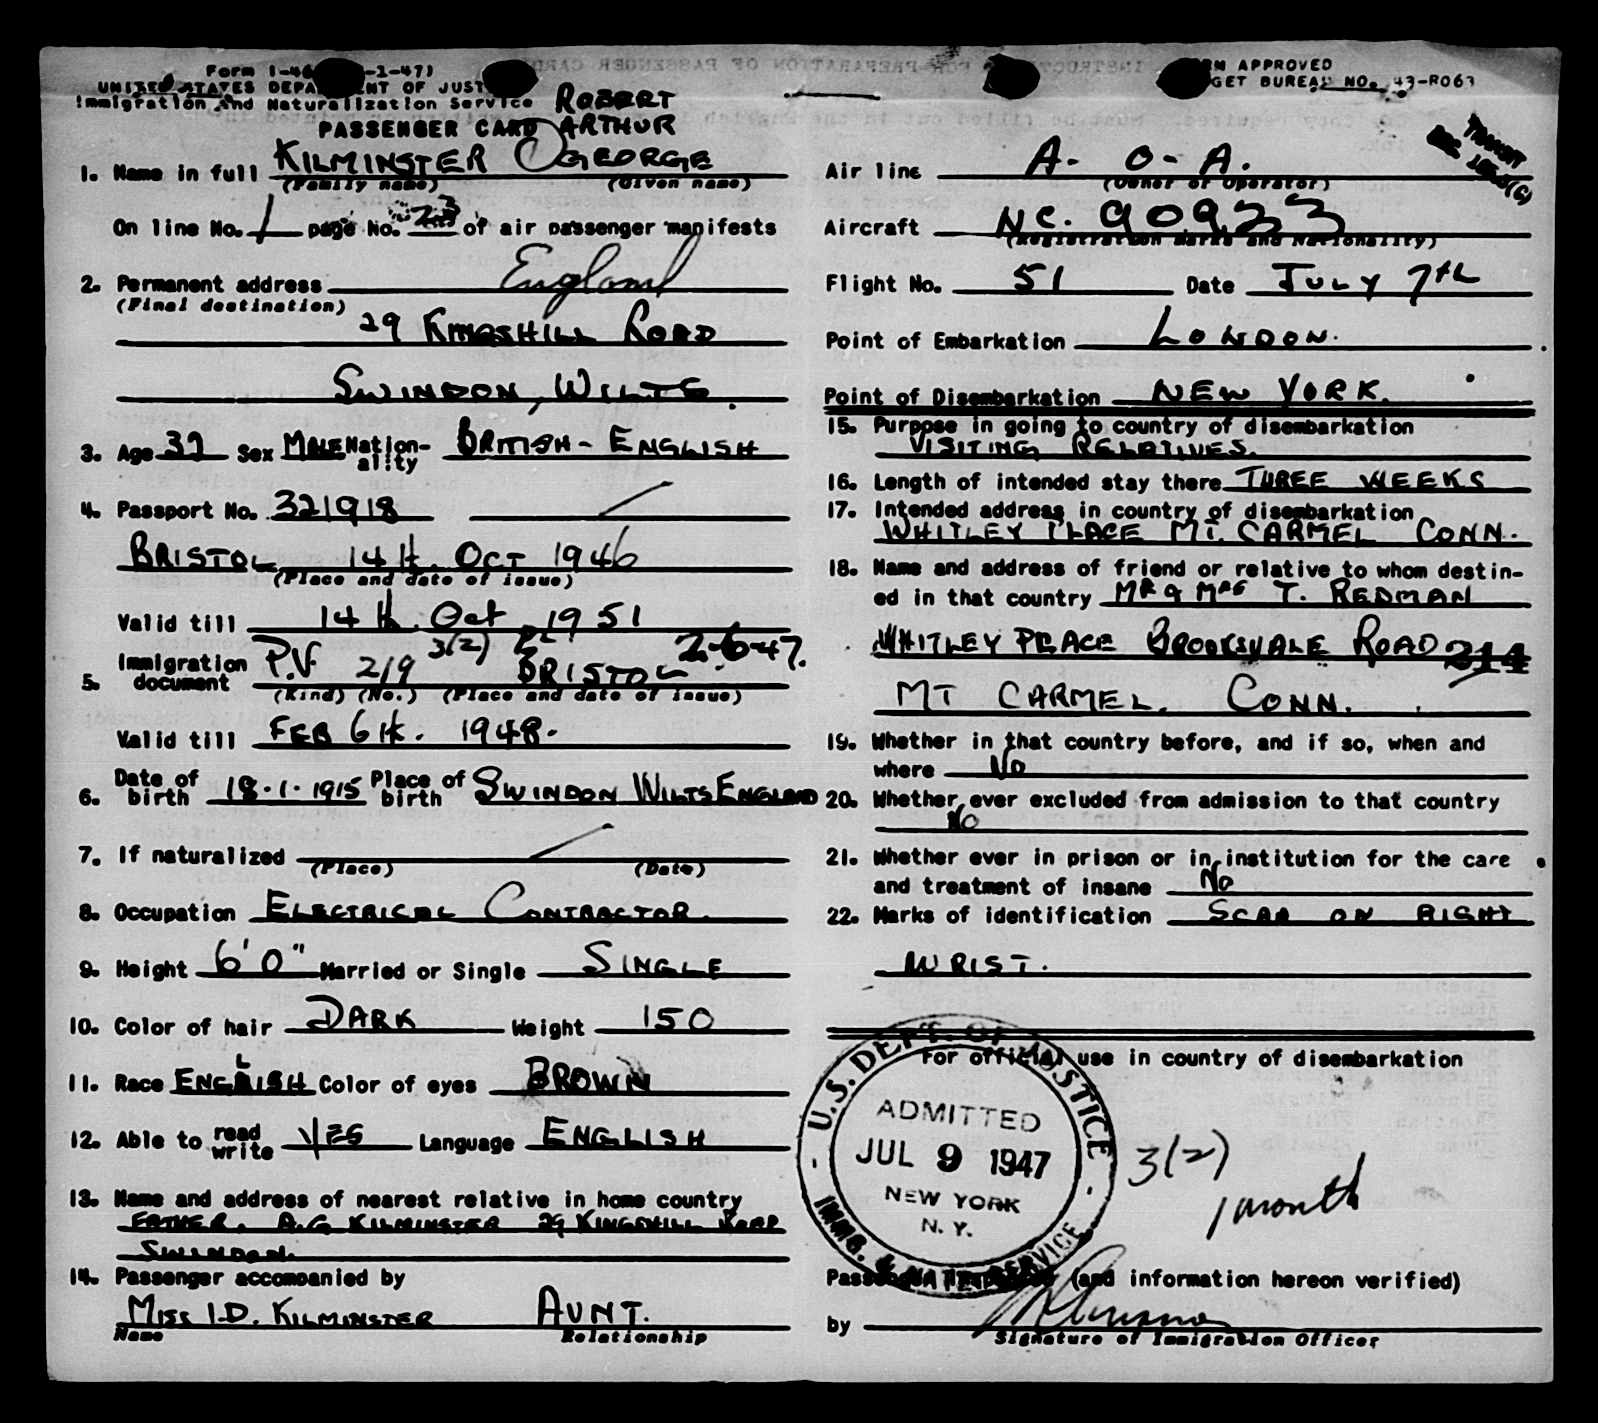 Form I-46 -1-47)
UNITED STATES DEPA ENT OF JUST
Immigration and Naturalization Service
ROBERT
PASSENGER CARD ARTHUR
1. Name in full KILMINSTER GEORGE
(Family name) (Given name)
On line No. 1 page No. 23 of air passenger manifests
2. Permanent address England
(Final destination)
29 KINGSHILL ROAD
SWINDON, WILTS.
3. Age 32 Sex MALE Nation-ality BRITISH - ENGLISH
4. Passport No. 321918
BRISTOL 14th. OCT 1946
(Place and date of issue)
Valid till 14th. Oct 1951
3(2)
5. Immigration document P.V 219 BRISTOL 2-6-47.
(Kind) (No.) (Place and date of issue)
Valid till FEB 6th. 1948.
6. Date of birth 18.1.1915 Place of birth SWINDON WILTS ENGLAND
7. If naturalized
(Place) (Date)
8. Occupation ELECTRICAL CONTRACTOR.
9. Height 6'0" Married or Single SINGLE
10. Color of hair DARK Weight 150
11. Race ENGLISH Color of eyes BROWN
12. Able to read write YES Language ENGLISH
13. Name and address of nearest relative in home country
FATHER. A.G KILMINSTER 29 KINGSHILL ROAD
SWINDON
14. Passenger accompanied by
MISS I.D. KILMINSTER AUNT.
Name Relationship
RM APPROVED
GET BUREAU NO. 43-R063
TRANSIT
Air line A. O. A.
(Owner or Operator)
Aircraft NC. 90933
(Registration marks and Nationality)
Flight No. 51 Date JULY 7th
Point of Embarkation LONDON.
Point of Disembarkation NEW YORK.
15. Purpose in going to country of disembarkation
VISITING RELATIVES.
16. Length of intended stay there THREE WEEKS
17. Intended address in country of disembarkation
WHITLEY PLACE MT. CARMEL CONN.
18. Name and address of friend or relative to whom destin-
ed in that country MR & MRS T. REDMAN
WHITLEY PLACE BROOKSVALE ROAD 214
MT CARMEL. CONN.
19. Whether in that country before, and if so, when and
where NO
20. Whether ever excluded from admission to that country
NO
21. Whether ever in prison or in institution for the care
and treatment of insane NO
22. Marks of identification SCAR ON RIGHT
WRIST.
For official use in country of disembarkation
U.S. DEPT. OF JUSTICE
ADMITTED
JUL 9 1947
NEW YORK
N. Y.
IMMG. & NATZ. SERVICE
3(2)
1 month
Passenger (and information hereon verified)
by
Signature of Immigration Officer